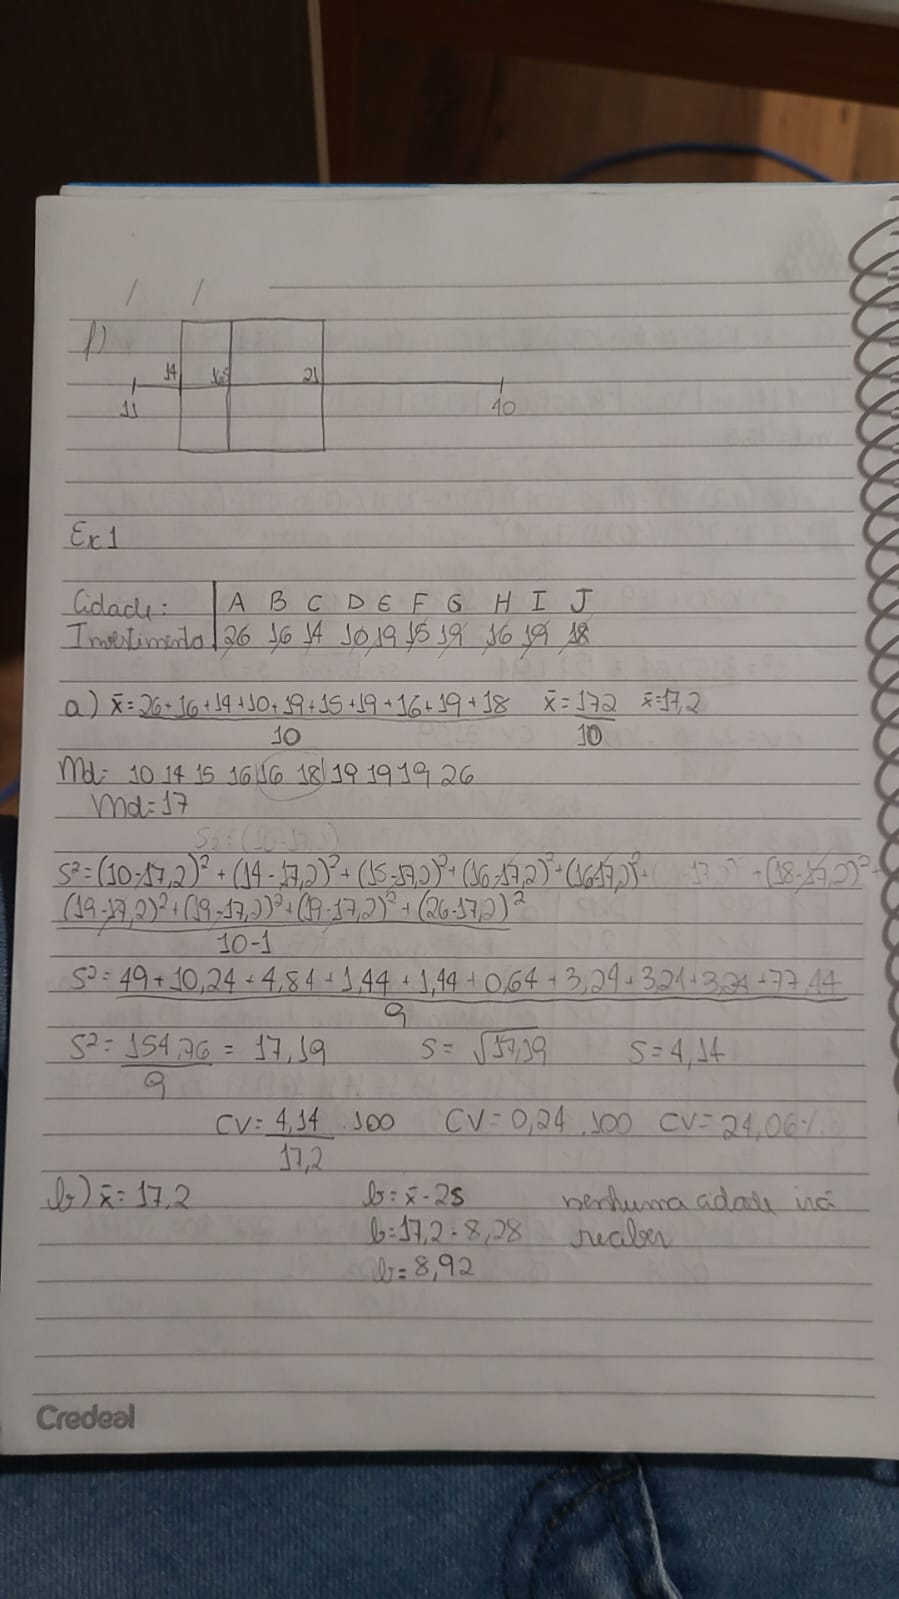 / /
f)
14 16,5 21
11 40
Ex1
Cidade: A B C D E F G H I J
Investimento 26 16 14 10 19 15 19 16 19 18
a) x̄ = 26+16+14+10+19+15+19+16+19+18 x̄ = 172 x̄=17,2
10 10
Md: 10 14 15 16 16 18 19 19 19 26
Md=17
S²=(10-17,2)²+(14-17,2)²+(15-17,2)²+(16-17,2)²+(16-17,2)²+ +(18-17,2)²+
(19-17,2)²+(19-17,2)²+(19-17,2)²+(26-17,2)²
10-1
S²= 49+10,24+4,84+1,44+1,44+0,64+3,24+3,24+3,24+77,44
9
S²= 154,76 = 17,19 S= √17,19 S=4,14
9
CV= 4,14 .100 CV=0,24 .100 CV=24,06%.
17,2
b) x̄=17,2 b= x̄-2s nenhuma cidade irá
b=17,2-8,28 receber
b=8,92
Credeal